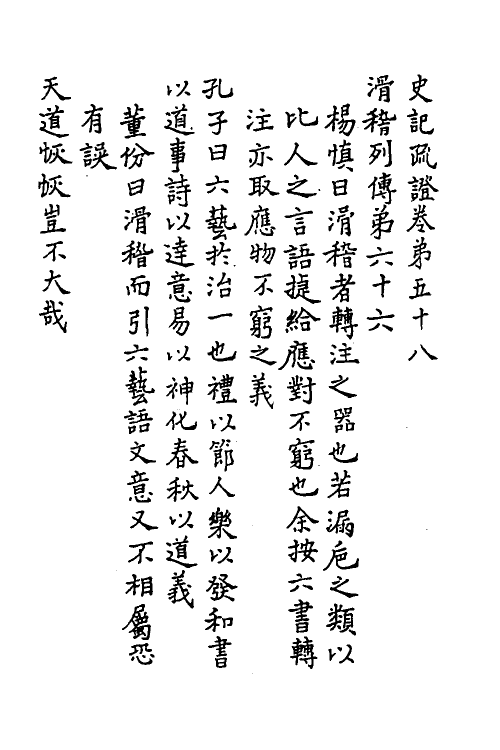 史記疏證卷第五十八
滑稽列傳第六十六
楊慎曰滑稽者轉注之器也若漏卮之類以
比人之言語捷給應對不窮也余按六書轉
注亦取應物不窮之義
孔子曰六藝於治一也禮以節人樂以發和書
以道事詩以達意易以神化春秋以道義
董份曰滑稽而引六藝語文意又不相屬恐
有誤
天道恢恢豈不大哉